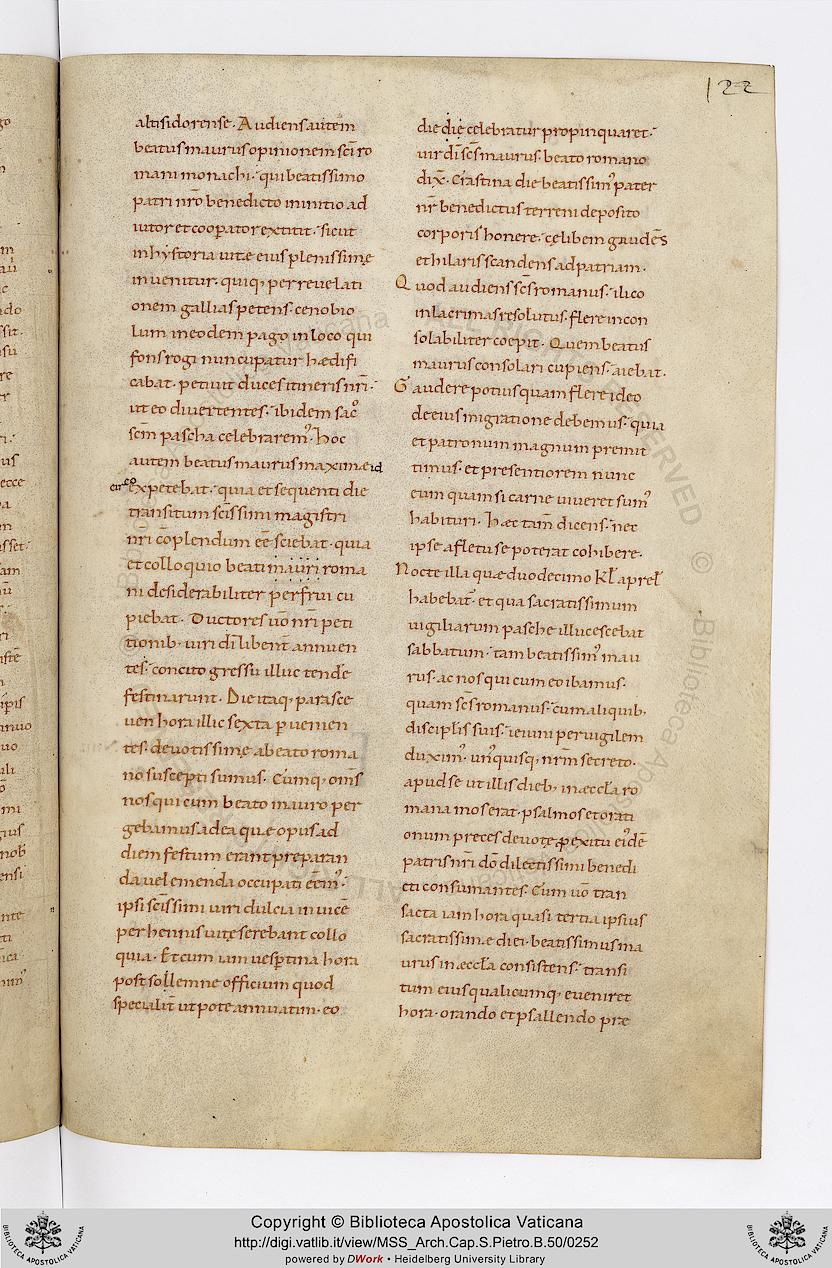 122
altisidorense. Audiens autem
beatus maurus opinionem sci ro
mani monachi. qui beatissimo
patri nro benedicto in initio ad
iutor et coopator extitit. sicut
in hystoria vitę eius plenissime
invenitur. quiq; per revelati
onem gallias petens. cenobio
lum in eodem pago in loco qui
fons rogi nuncupatur hædifi
cabat. petivit duces itineris nri.
ut eo divertentes. ibidem sac
scm pascha celebrarem; hoc
autem beatus maurus maxime id
expetebat. quia et sequenti die
transitum scissimi magistri
nri coplendum eē sciebat. quia
et colloquio beati mauri roma
ni desiderabiliter perfrui cu
piebat. Ductores uō nri peti
tionib; viri di libent annuen
tes. concito gressu illuc tende
festinarunt. Die itaq; parasce
ven hora illic sexta pvenien
tes. devotissime a beato roma
no suscepti sumus. Cumq; oms
nos qui cum beato mauro per
gebamus ad ea quę opus ad
diem festum erant preparan
da vel emenda occupati eēm;
ipsi scissimi viri dulcia invicē
perhennis vitę serebant collo
quia. Et cum iam vesptina hora
post sollemne officium quod
specialit ut pote annuatim. eo
die die celebratur propinquaret.
vir di scs maurus. beato romano
dix. Crastina die beatissim; pater
nr benedictus terreni deposito
corporis honere. cęlibem gaudēs
et hilaris scandens ad patriam.
Quod audiens scs romanus. ilico
in lacrimas resolutus. flere incon
solabiliter coepit. Quem beatus
maurus consolari cupiens. aiebat.
Gaudere potius quam flere ideo
de eius migratione debemus. quia
et patronum magnum premit
timus. et presentiorem nunc
eum quam si carne viveret sum;
habituri. Hæc tam dicens. nec
ipse a fletu se poterat cohibere.
Nocte illa quæ duodecimo kl aprel
habebat. et qua sacratissimum
vigiliarum pasche illucescebat
sabbatum. tam beatissim; mau
rus. ac nos qui cum eo ibamus.
quam scs romanus. cum aliquib;
disciplis suis. ieiuni pervigilem
duxim; un;quisq; nrm secreto.
apud se ut illis dieb; in eccla ro
mana mos erat. psalmos et orati
onum preces devote p exitu ei;dē
patris nri dō dilectissimi benedi
cti consumantes. Cum uō tran
sacta iam hora quasi tertia ipsius
sacratissimæ diei. beatissimus ma
urus in eccla consistens. transi
tum eius qualicumq; eveniret
hora. orando et psallendo præ
Copyright © Biblioteca Apostolica Vaticana
http://digi.vatlib.it/view/MSS_Arch.Cap.S.Pietro.B.50/0252
powered by DWork • Heidelberg University Library